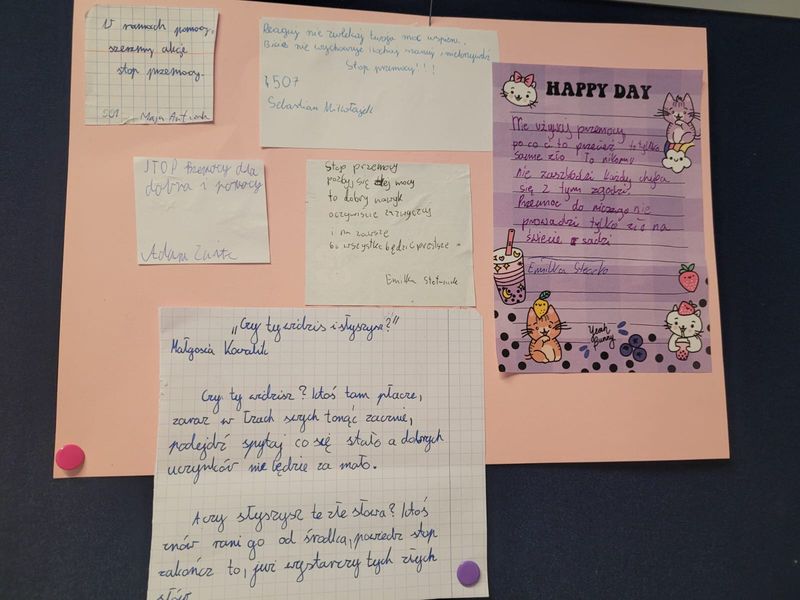 W ramach pomocy,
szerzmy akcję
stop przemocy.
501 Maja
Reaguj nie zwlekaj twoja moc wspiera.
Bicie nie wychowuje i
Stop przemocy!!!
507
Sebastian Mikołajek
STOP Przemocy dla
dobra i pomocy
Adam
Stop przemocy
pozbyj się złej mocy
to dobry nawyk
oczywiście zazwyczaj
i na zawsze
bo wszystko będzie prostsze
Emilka
HAPPY DAY
Nie używaj przemocy
po co ci to przecież to tylko
same zło To nikomu
nie zaszkodzi każdy chyba
się z tym zgodzi
Przemoc do niczego nie
prowadzi tylko zło na
świecie sadzi
Emilka
Yeah
Bunny
„Czy ty widzisz i słyszysz?"
Małgosia Kowalik
Czy ty widzisz? Ktoś tam płacze,
zaraz w łzach swych tonąć zacznie,
podejdź spytaj co się stało a dobrych
uczynków nie będzie za mało.
A czy słyszysz te złe słowa? Ktoś
znów rani go od środka, powiedz stop
zakończ to, już wystarczy tych złych
słów.